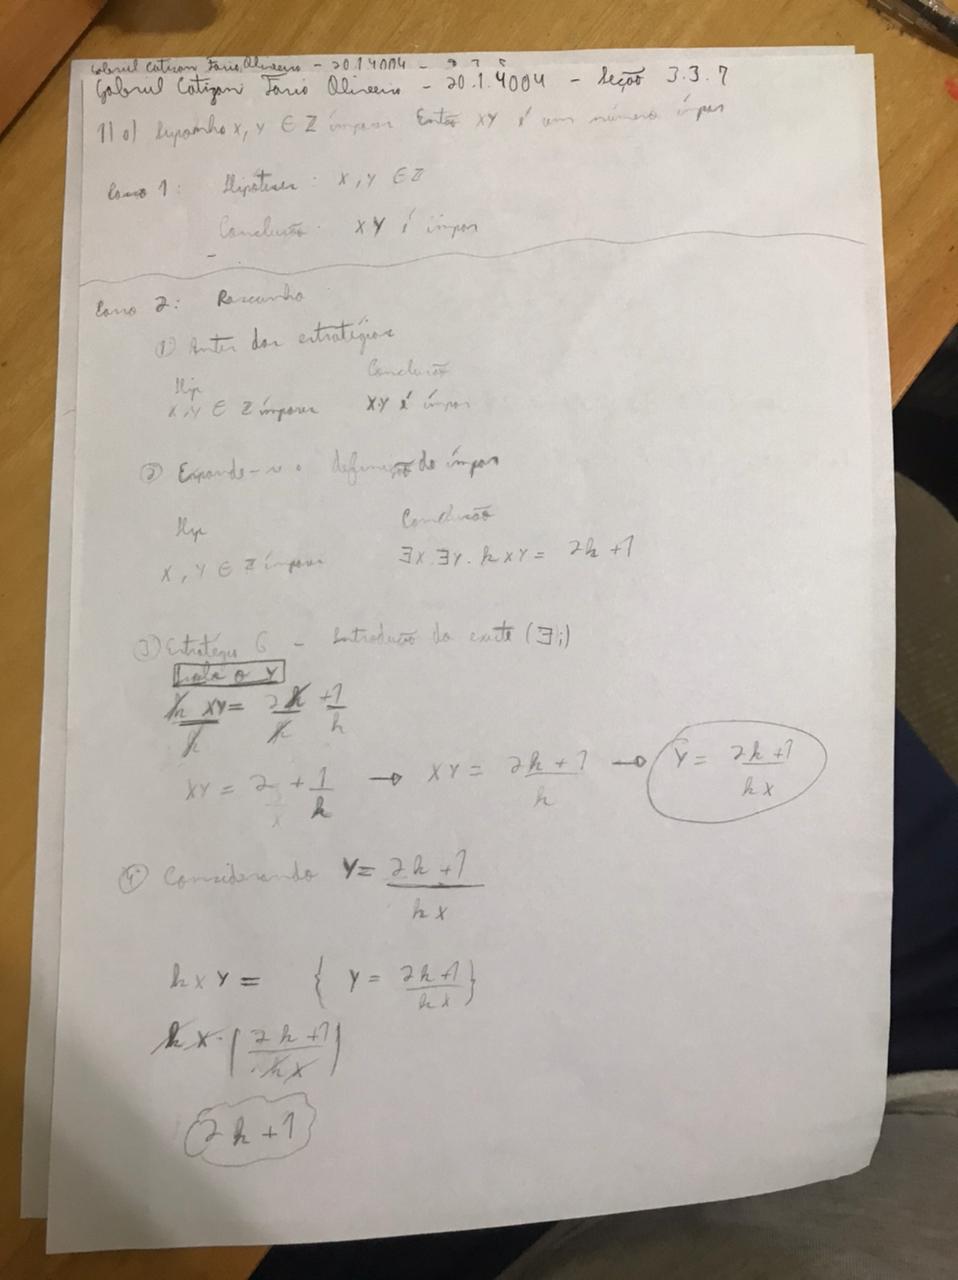 Gabriel Catizan Faria Oliveira - 20.1.4004 -
Gabriel Catizan Faria Oliveira - 20.1.4004 - Seção 3.3.7
1) a) Suponha x, y ∈ Z ímpares Então XY é um número ímpar
1: Hipóteses: x, y ∈ Z
Conclusão: XY é ímpar
2: Rascunho
① Antes das estratégias
Hip Conclusão
x, y ∈ Z ímpares X·Y é ímpar
② Expande-se a definição de ímpar
Hip Conclusão
X, Y ∈ Z ímpares ∃X.∃Y. k XY = 2k + 1
③ Estratégia 6 - Introdução do existe (∃i)
Isola o Y
k XY/k = 2k/k + 1/k
XY = 2 + 1/k → XY = 2k + 1/k → Y = 2k + 1/kx
④ Considerando Y = 2k + 1/kx
kxy = { Y = 2k+1/kx }
kx · (2k + 1/kx)
2k + 1